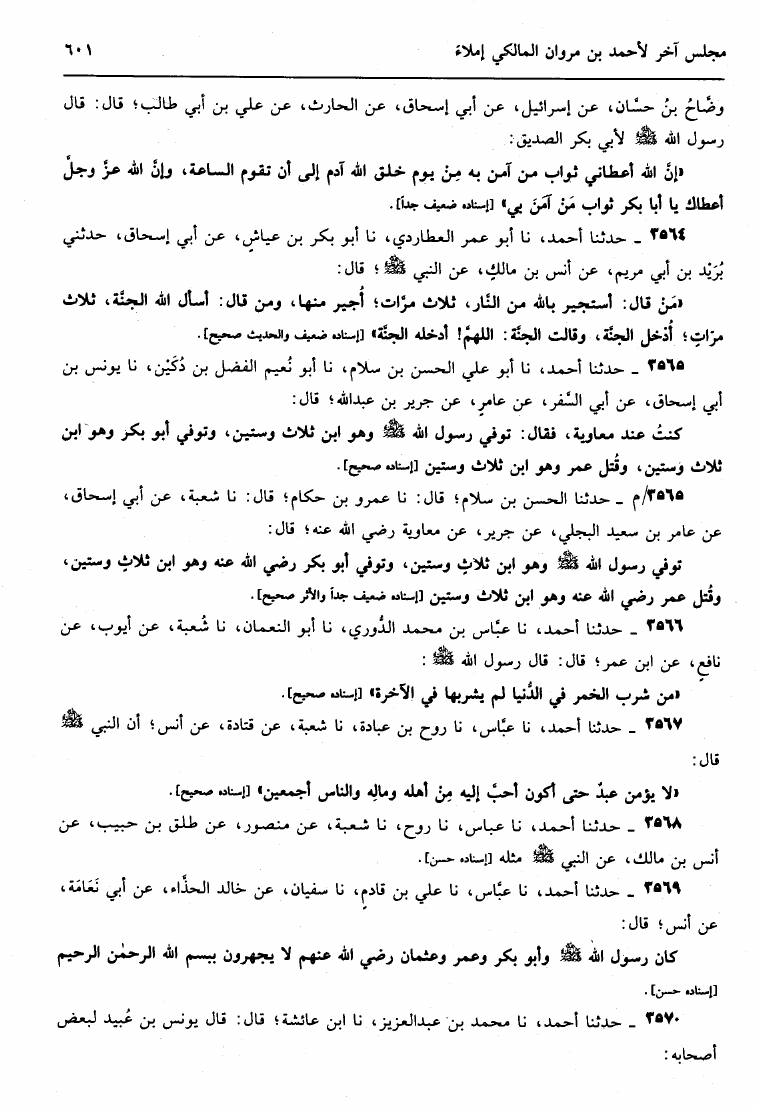 مجلس آخر لأحمد بن مروان المالكي إملاءً ٦٠١
وضَّاحُ بنُ حسَّان، عن إسرائيل، عن أبي إسحاق، عن الحارث، عن علي بن أبي طالب؛ قال: قال
رسول الله ﷺ لأبي بكر الصديق:
«إنَّ الله أعطاني ثواب من آمن به مِنْ يوم خلق الله آدم إلى أن تقوم الساعة، وإنَّ الله عزَّ وجلَّ
أعطاك يا أبا بكر ثواب مَنْ آمَنَ بي» [إسناده ضعيف جداً].
٣٥٦٤ ـ حدثنا أحمد، نا أبو عمر العطاردي، نا أبو بكر بن عياشٍ، عن أبي إسحاق، حدثني
بُرَيْد بن أبي مريم، عن أنس بن مالكٍ، عن النبي ﷺ؛ قال:
«مَنْ قال: أستجير بالله من النَّار، ثلاث مرَّات؛ أُجير منها، ومن قال: أسأل الله الجنَّة، ثلاث
مرّاتٍ؛ أُدْخل الجنَّة، وقالت الجنَّة: اللهمَّ! أدخله الجنَّة» [إسناده ضعيف والحديث صحيح].
٣٥٦٥ ـ حدثنا أحمد، نا أبو علي الحسن بن سلام، نا أبو نُعيم الفضل بن دُكَيْن، نا يونس بن
أبي إسحاق، عن أبي السَّفر، عن عامرٍ، عن جرير بن عبدالله؛ قال:
كنتُ عند معاوية، فقال: توفي رسول الله ﷺ وهو ابن ثلاث وستين، وتوفي أبو بكر وهو ابن
ثلاث وستين، وقُتل عمر وهو ابن ثلاث وستين [إسناده صحيح].
٣٥٦٥/م ـ حدثنا الحسن بن سلام؛ قال: نا عمرو بن حكام؛ قال: نا شعبة، عن أبي إسحاق،
عن عامر بن سعيد البجلي، عن جرير، عن معاوية رضي الله عنه؛ قال:
توفي رسول الله ﷺ وهو ابن ثلاثٍ وستين، وتوفي أبو بكر رضي الله عنه وهو ابن ثلاثٍ وستين،
وقُتل عمر رضي الله عنه وهو ابن ثلاث وستين [إسناده ضعيف جداً والأثر صحيح].
٣٥٦٦ ـ حدثنا أحمد، نا عبَّاس بن محمد الدُّوري، نا أبو النعمان، نا شُعبة، عن أيوب، عن
نافعٍ، عن ابن عمر؛ قال: قال رسول الله ﷺ:
«من شرب الخمر في الدُّنيا لم يشربها في الآخرة» [إسناده صحيح].
٣٥٦٧ ـ حدثنا أحمد، نا عبَّاس، نا روح بن عبادة، نا شعبة، عن قتادة، عن أنس؛ أن النبي ﷺ
قال:
«لا يؤمن عبدٌ حتى أكون أحبَّ إليه مِنْ أهله ومالِه والناس أجمعين» [إسناده صحيح].
٣٥٦٨ ـ حدثنا أحمد، نا عباس، نا روح، نا شعبة، عن منصور، عن طلق بن حبيب، عن
أنس بن مالك، عن النبي ﷺ مثله [إسناده حسن].
٣٥٦٩ ـ حدثنا أحمد، نا عبَّاس، نا علي بن قادمٍ، نا سفيان، عن خالد الحذَّاء، عن أبي نَعَامَة،
عن أنس؛ قال:
كان رسول الله ﷺ وأبو بكر وعمر وعثمان رضي الله عنهم لا يجهرون ببسم الله الرحمٰن الرحيم
[إسناده حسن].
٣٥٧٠ ـ حدثنا أحمد، نا محمد بن عبدالعزيز، نا ابن عائشة؛ قال: قال يونس بن عُبيد لبعض
أصحابه: